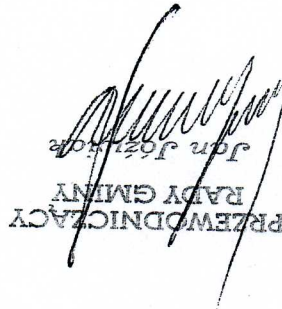 PRZEWODNICZĄCY
RADY GMINY
Jan Jóźwiak